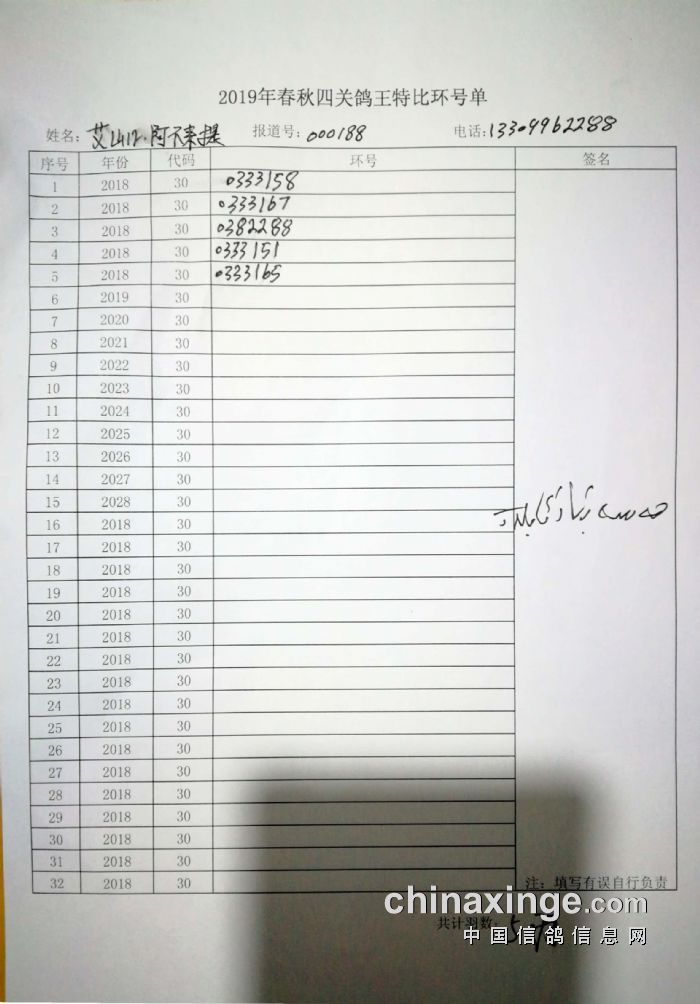 2019年春秋四关鸽王特比环号单
姓名：艾山江·阿不来提 报道号：000188 电话：13309962288
序号 年份 代码 环号 签名
1 2018 30 0333158
2 2018 30 0333167
3 2018 30 0382288
4 2018 30 0333151
5 2018 30 0333165
6 2019 30
7 2020 30
8 2021 30
9 2022 30
10 2023 30
11 2024 30
12 2025 30
13 2026 30
14 2027 30
15 2028 30
16 2018 30
17 2018 30
18 2018 30
19 2018 30
20 2018 30
21 2018 30
22 2018 30
23 2018 30
24 2018 30
25 2018 30
26 2018 30
27 2018 30
28 2018 30
29 2018 30
30 2018 30
31 2018 30
32 2018 30
注：填写有误自行负责
chinaxinge.com
共计羽数： 5
中国信鸽信息网